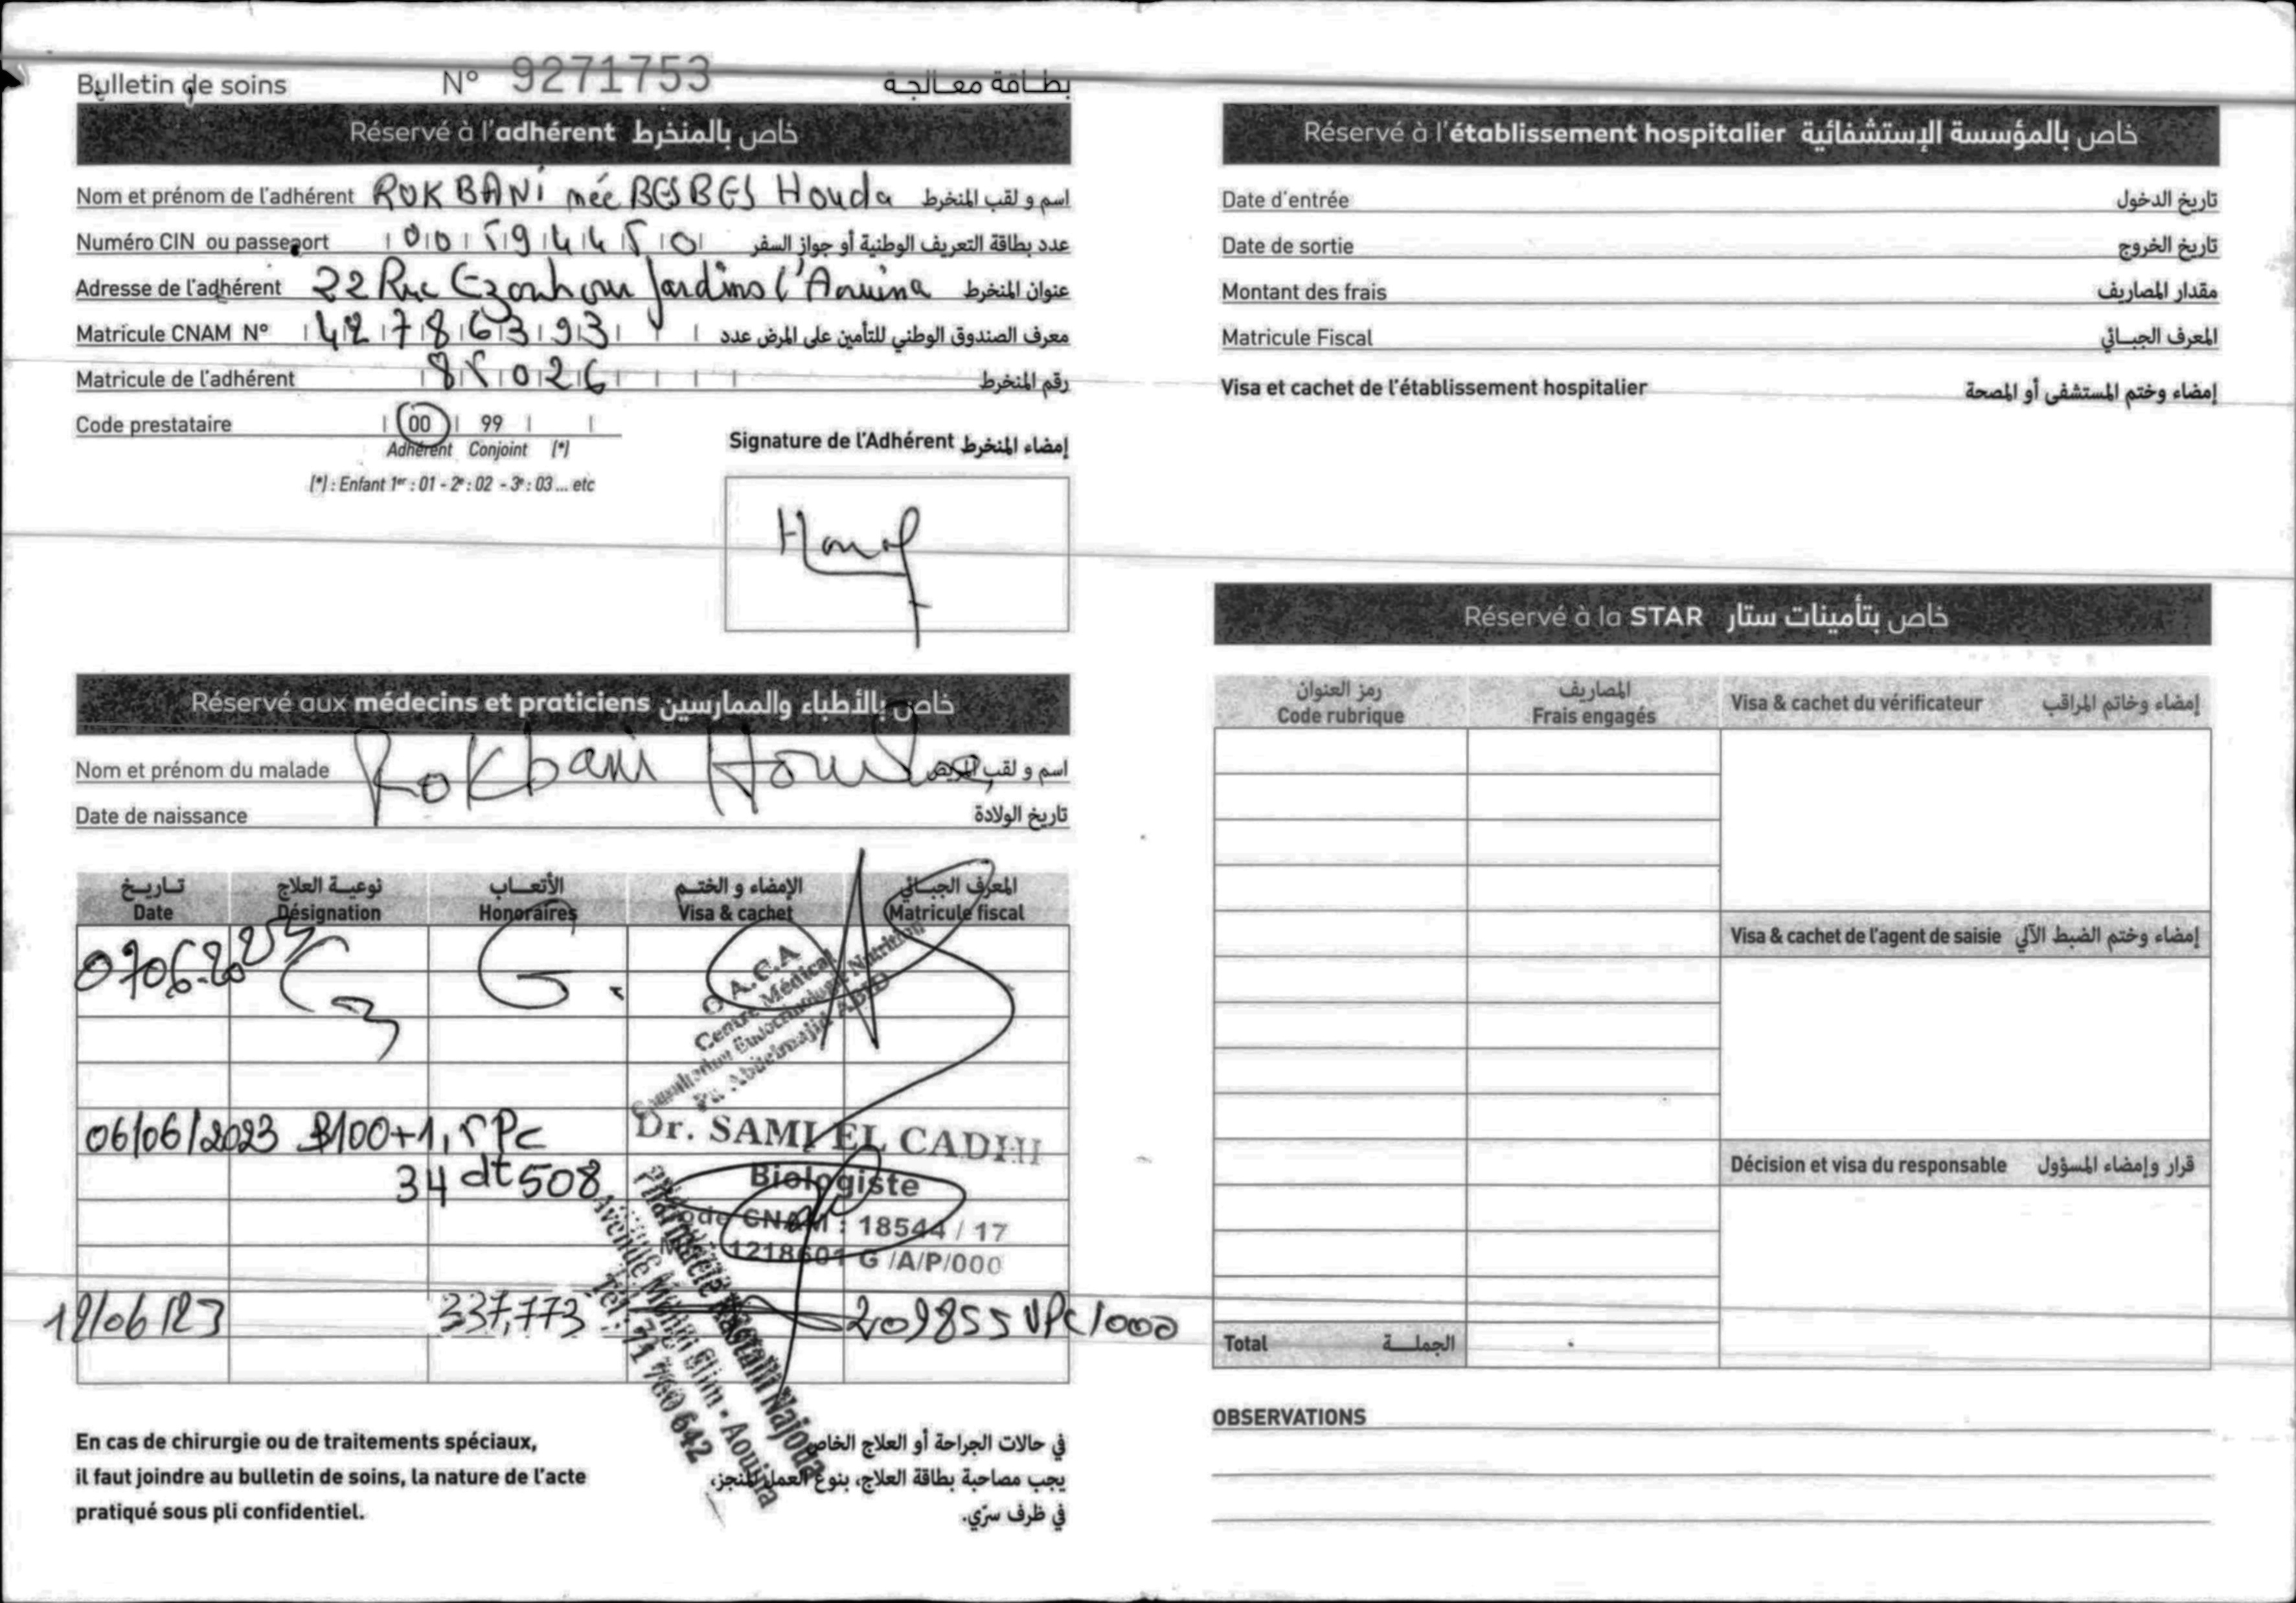 Bulletin de soins N° 9271753 بطاقة معالجة
Réservé à l'adhérent خاص بالمنخرط
Nom et prénom de l'adhérent ROKBANI née BESBES Houda اسم و لقب المنخرط
Numéro CIN ou passeport 00594450 عدد بطاقة التعريف الوطنية أو جواز السفر
Adresse de l'adhérent 22 Rue Ezouhour Jardins l'Aouina عنوان المنخرط
Matricule CNAM N° 42786393 معرف الصندوق الوطني للتأمين على المرض عدد
Matricule de l'adhérent 85026 رقم المنخرط
Code prestataire 00 99
Adhérent Conjoint (*)
(*) : Enfant 1er : 01 - 2e : 02 - 3e : 03 ... etc
Signature de l'Adhérent إمضاء المنخرط
Réservé aux médecins et praticiens خاص بالأطباء والممارسين
Nom et prénom du malade Rokbani Houda اسم و لقب المريض
Date de naissance تاريخ الولادة
تاريخ نوعية العلاج الأتعاب الإمضاء و الختم المعرف الجبائي
Date Désignation Honoraires Visa & cachet Matricule fiscal
0706-2023 C3 G.
O.A.C.A
Centre Médical
Consultation Endocrinologie Nutrition
Pr. Abdelmajid ABID
06/06/2023 B100+1,5PC
34 dt 508
Dr. SAMI EL CADHI
Biologiste
Code CNAM : 18544 / 17
1218601 G /A/P/000
12/06/23 337,773 209855 VPC/000
Pharmacie Najoua
Avenue Mongi Slim - Aouina
Tél : 71 760 642
En cas de chirurgie ou de traitements spéciaux,
il faut joindre au bulletin de soins, la nature de l'acte
pratiqué sous pli confidentiel.
في حالات الجراحة أو العلاج الخاص
يجب مصاحبة بطاقة العلاج، بنوع العمل المنجز،
في ظرف سرّي.
Réservé à l'établissement hospitalier خاص بالمؤسسة الإستشفائية
Date d'entrée تاريخ الدخول
Date de sortie تاريخ الخروج
Montant des frais مقدار المصاريف
Matricule Fiscal المعرف الجبائي
Visa et cachet de l'établissement hospitalier إمضاء وختم المستشفى أو المصحة
Réservé à la STAR خاص بتأمينات ستار
رمز العنوان المصاريف
Code rubrique Frais engagés Visa & cachet du vérificateur إمضاء وخاتم المراقب
Visa & cachet de l'agent de saisie إمضاء وختم الضبط الآلي
Décision et visa du responsable قرار وإمضاء المسؤول
Total الجملة
OBSERVATIONS